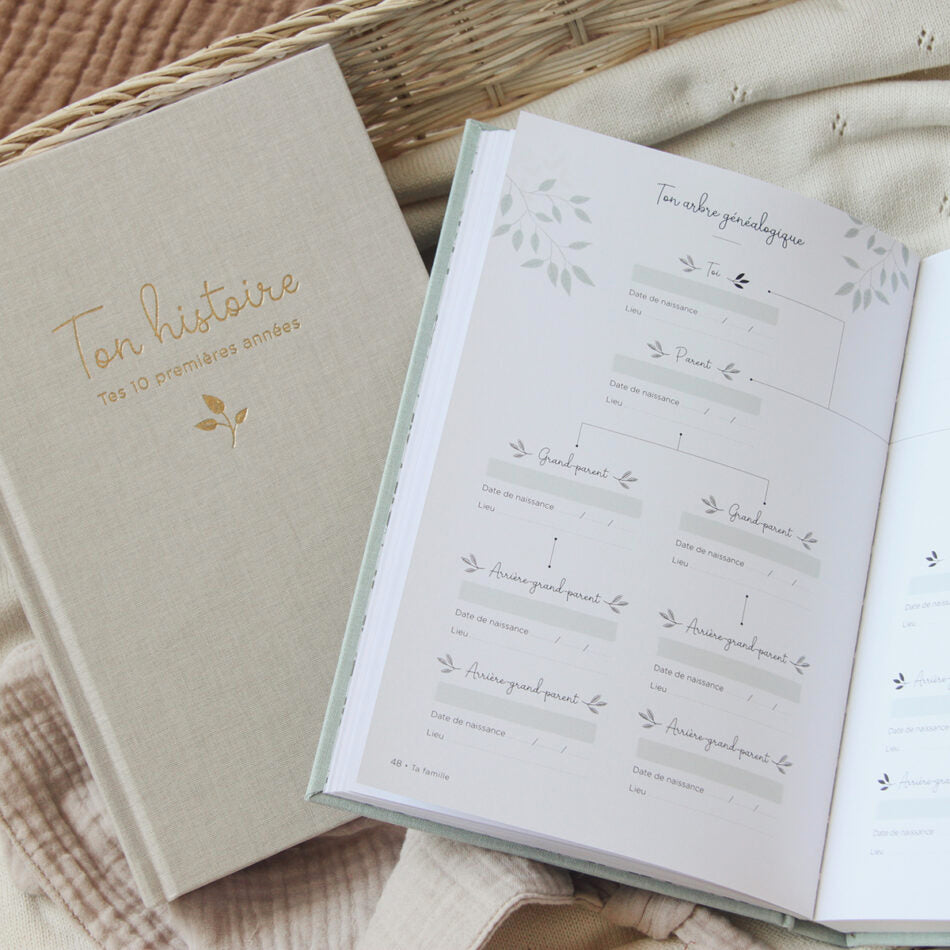 Ton histoire
Tes 10 premières années
Ton arbre généalogique
Toi
Date de naissance / /
Lieu
Parent
Date de naissance / /
Lieu
Grand-parent
Date de naissance / /
Lieu
Arrière-grand-parent
Date de naissance / /
Lieu
Arrière-grand-parent
Date de naissance / /
Lieu
Grand-parent
Date de naissance / /
Lieu
Arrière-grand-parent
Date de naissance / /
Lieu
Arrière-grand-parent
Date de naissance / /
Lieu
48 • Ta famille
Date de
Lieu
Arrière-
Date de naissance
Lieu
Arrière-gra
Date de naissance
Lieu